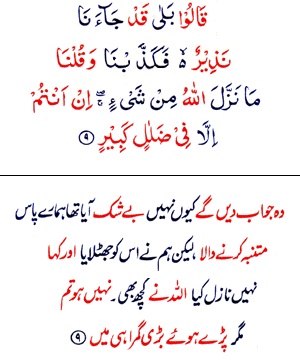 قَالُوْا بَلٰى قَدْ جَآءَ نَا
نَذِيْرٌ ۵ فَكَذَّ بْنَا وَ قُلْنَا
مَا نَزَّلَ اللّٰهُ مِنْ شَىْ ءٍ ۚۖ اِنْ اَنْتُمْ
اِلَّا فِىْ ضَلٰلٍ كَبِيْرٍ ۹
وہ جواب دیں گے کیوں نہیں بے شک آیا تھا ہمارے پاس
متنبہ کرنے والا ، لیکن ہم نے اس کو جھٹلایا اور کہا
نہیں نازل کیا اللہ نے کچھ بھی ۔ نہیں ہو تم
مگر پڑے ہوئے بڑی گمراہی میں ۹